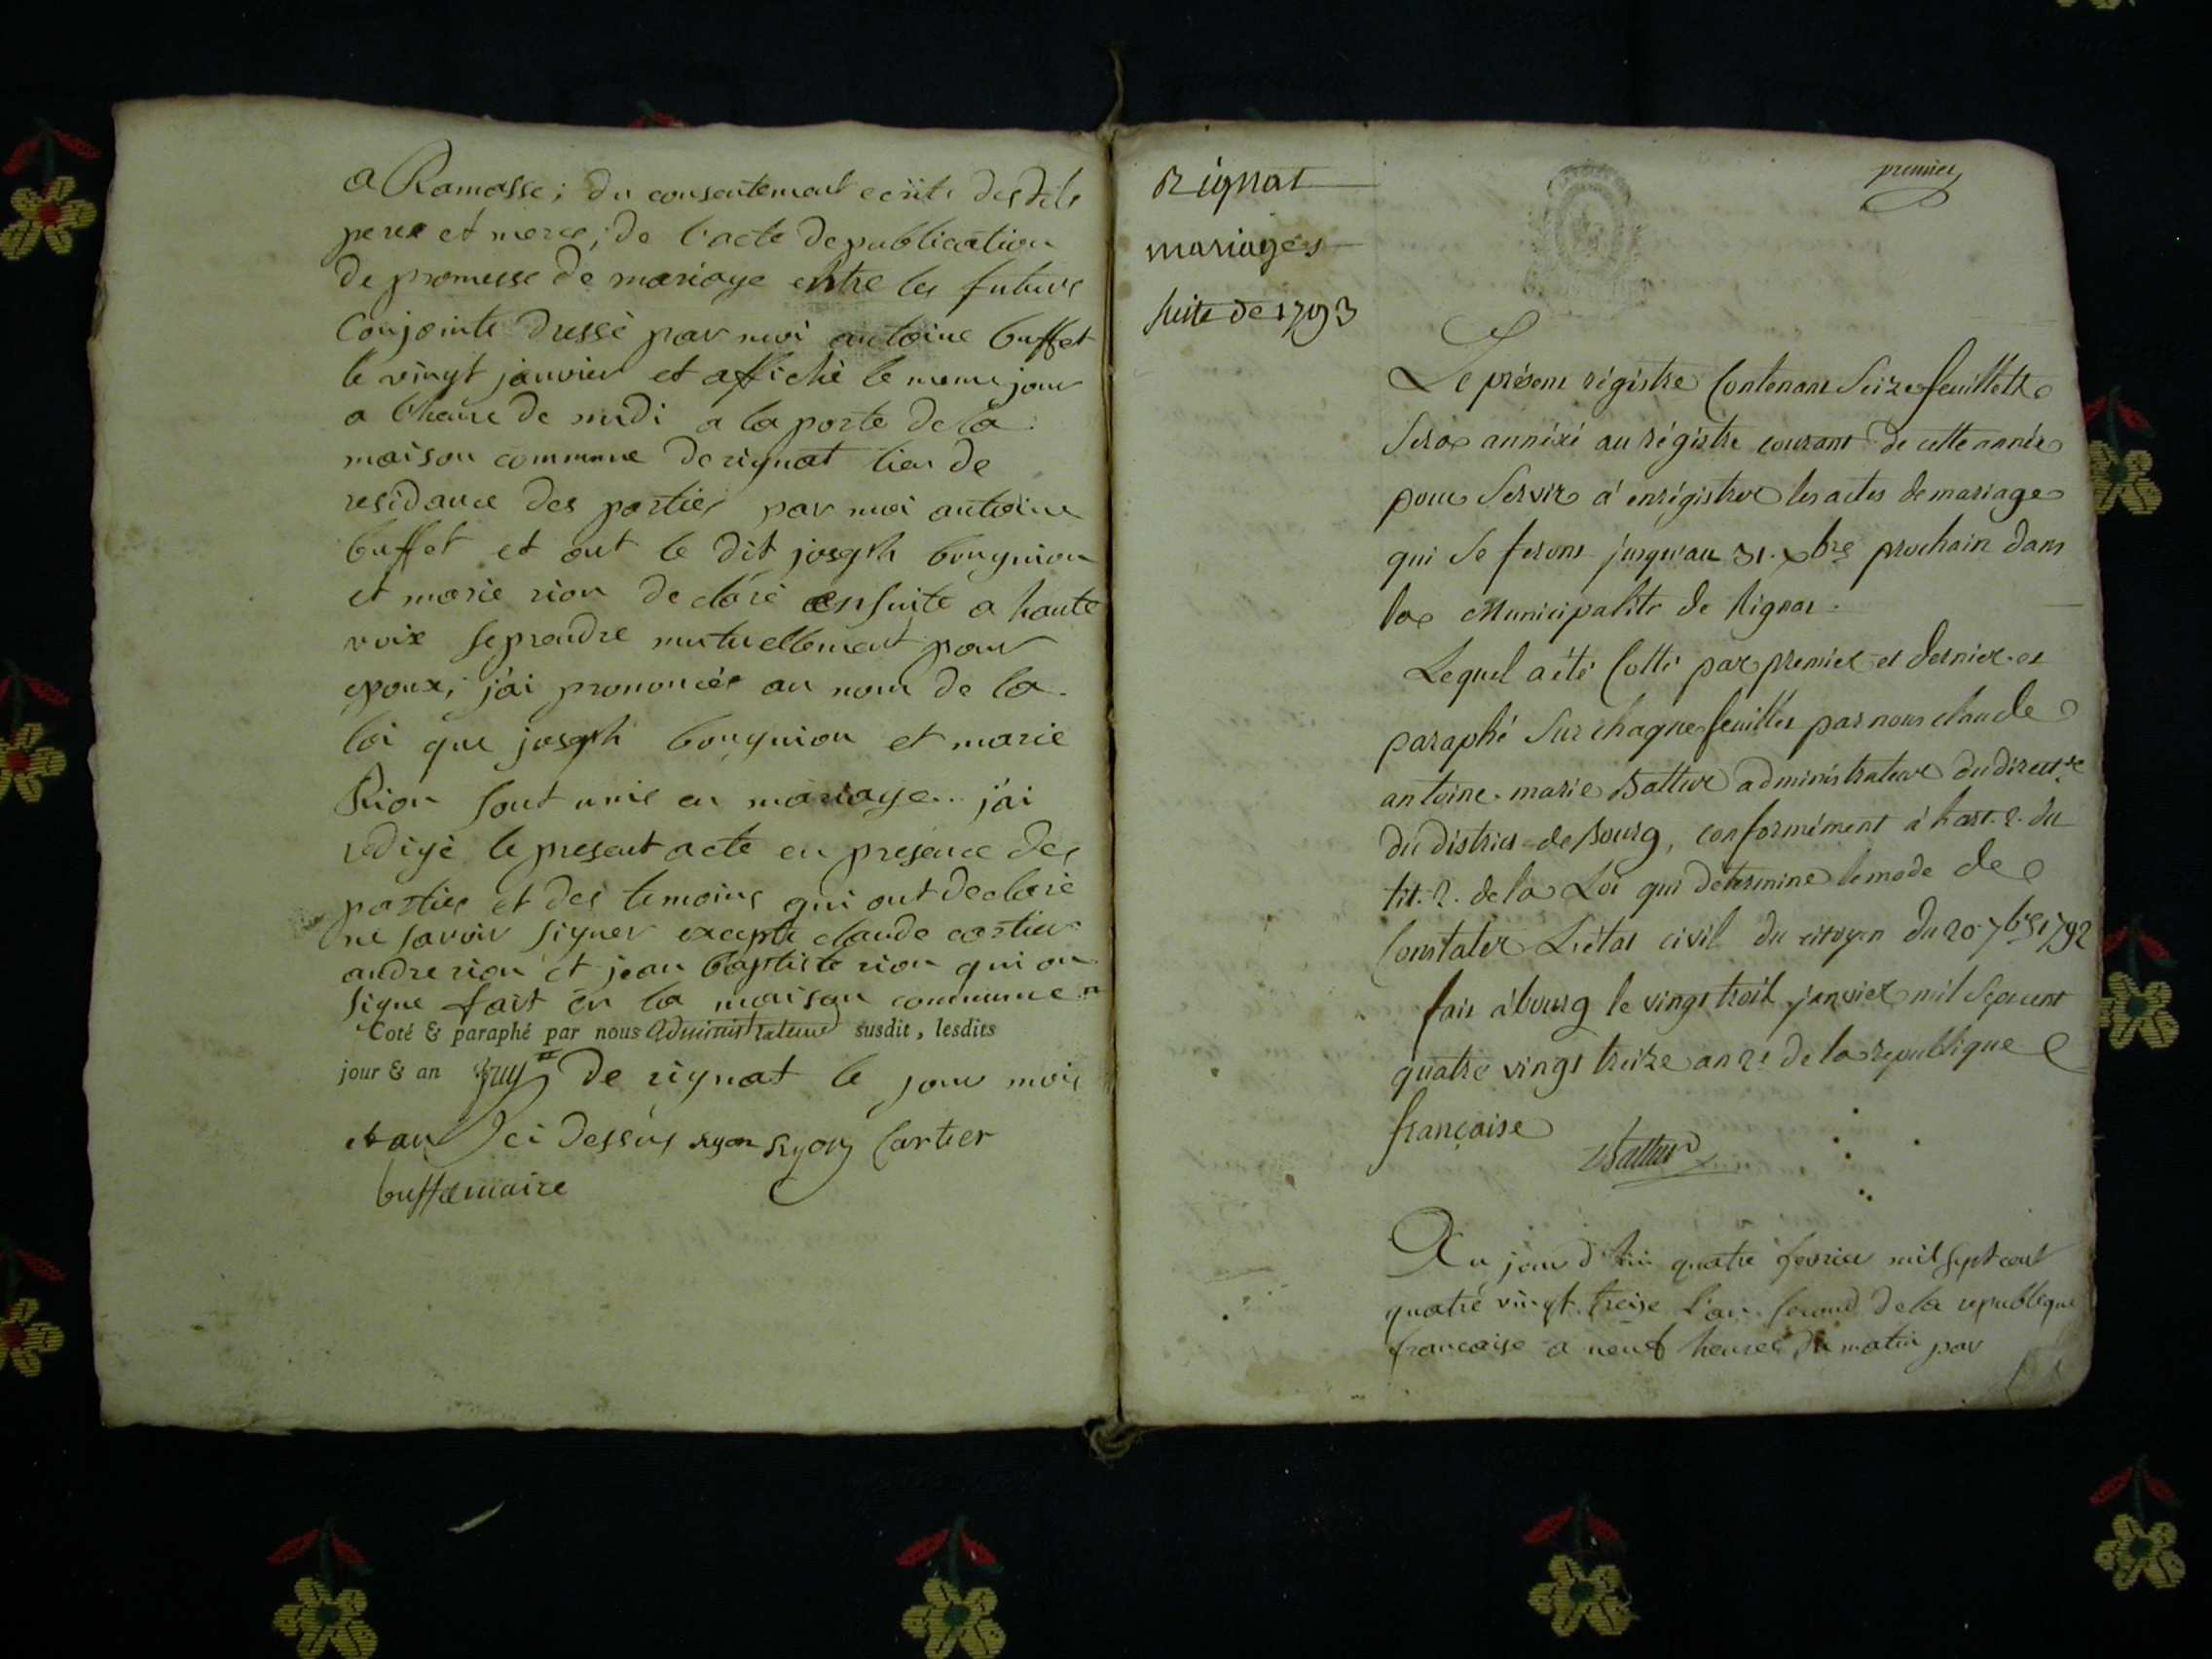 a Ramasse; du consentement ecrits desdits
peres et meres; de l'acte de publication
de promesse de mariage entre les futurs
Conjoints dressé par moi antoine buffet
le vingt janvier et affiché le meme jour
a l'heure de midi a la porte de la
maison commune de rignat lieu de
residance des parties par moi antoine
buffet et out le dit joseph bougnion
et marie rion declaré ensuite a haute
voix se prendre mutuellement pour
epoux; j'ai prononcée au nom de la
loi que joseph bougnion et marie
Rion sont unis en mariage.. j'ai
redigé le present acte en presence des
parties et des temoins qui ont declaré
ne savoir signer excepté claude cartier
andre rion et jean baptiste rion qui on
signe fait en la maison commune
Coté & paraphé par nous administrateur susdit, lesdits
jour & an de rignat le jour mois
et an ci dessus ryon Ryon Cartier
buffet maire
Rignat
mariages
suite de 1793
premier
Le présent régistre Contenant Seize feuillets
Sera annéxé au régistre courant de cette année
pour Servir à enrégistrer les actes de mariage
qui Se feront jusqu'au 31. xbre prochain dans
la Municipalité de Rignat.
Lequel a été Cotté par premier et dernier et
paraphé Sur chaque feuillet par nous claude
antoine. marie Battur administrateur du direct.re
du district de Bourg, conformément à l'art. 2. du
tit. 2. de la Loi qui détermine le mode de
Constater L'état civil du citoyen du 20 7bre 1792
fait à bourg le vingt trois janvier mil Sept cent
quatre vingt treize an 2e de la republique
française
Battur
Au jourd'hui quatre fevrier mil sept cent
quatre vingt treise l'an second de la republique
francaise a neuf heures du matin par